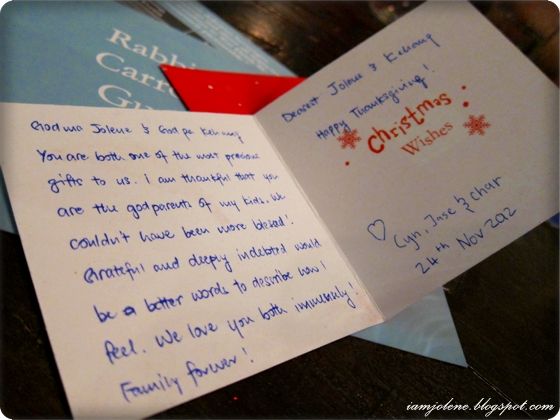 Rabbi
Carro
Gu
Godma Jolene & Godpa Kehong
You are both one of the most precious
gifts to us. I am thankful that you
are the godparents of my kids. We
couldn't have been more blessed!
Grateful and deeply indebted would
be a better words to describe how I
feel. We love you both immensely!
Family forever!
Dearest Jolene & Kehong
Happy Thanksgiving!
Christmas
Wishes
Cyn, Jase & Char
24th Nov 2012
iamjolene.blogspot.com